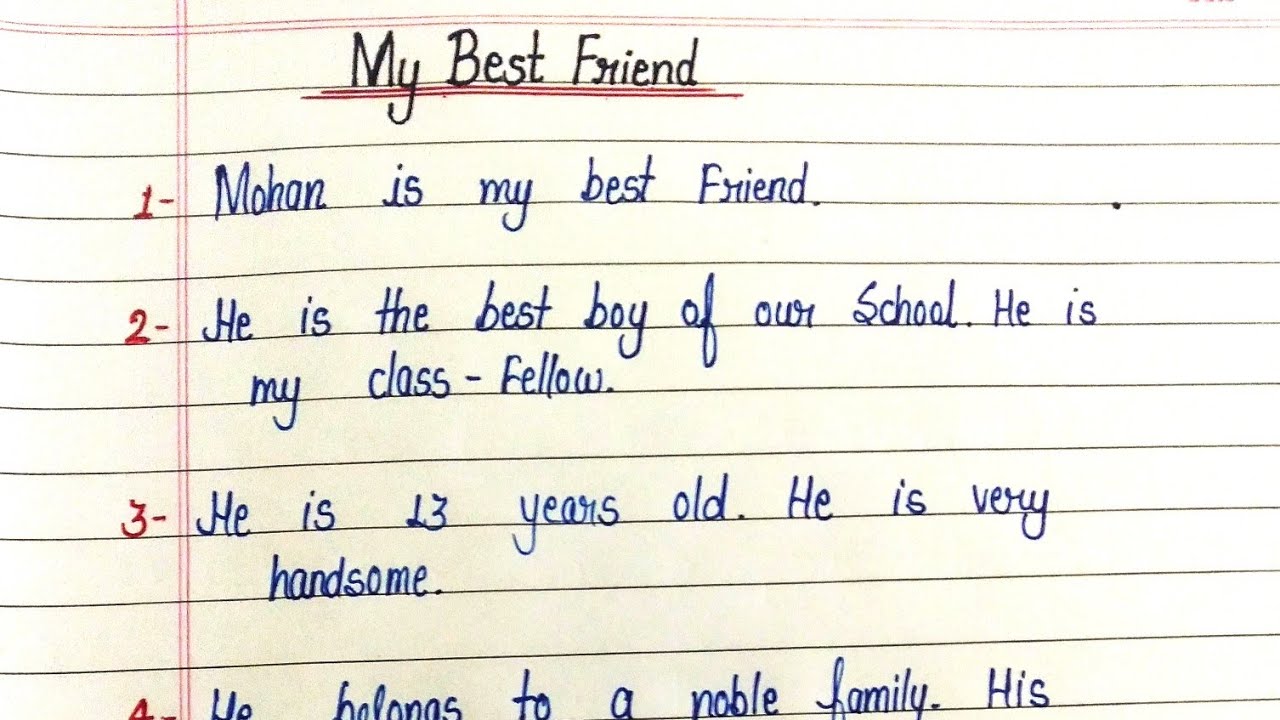 My Best Friend
1- Mohan is my best Friend.
2- He is the best boy of our School. He is
my class-Fellow.
3- He is 13 years old. He is very
handsome.
4- He belongs to a noble family. His